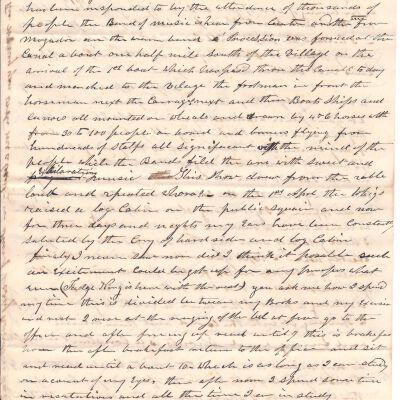 has been responded to by the attendance of thousands of
people the Band of music is hear from Canton and the
are the warm band a Procession was formed at the
Canal a bout one half mile South of the Village on the
arrival of the 1st boat which throu the Canal to day
and marched to the Vilage the footman in front the
horseman next the Carrages next and then Boats Ships and
canoes all mounted on wheals and drawn by 4 & 6 horses with
from 30 to 100 people on board and banners flying from
hundreds of staffs all significant of the mind of the
people while the Band filed the are with Sweet and
Exhilarating music this Shor down from the
and on the 1st Apl the Whigs
raised a Log Cabin on the public Square and now
for three days and nights my Ears have been Constantly
saluted by the Cry of hard sides and Log Cabin
I never saw nor did I think it posible such
an Excitement Could be got up for any purpos what
ever (Judge King is here with the rest) you ask me how I spend
my time this is divided between my Books and my Exercise
and rest I rise at the ringing of the bell at five go to the
office and after fireing up read until 7 this is brakefast
hour then after brakefast return to the office and set
and read until a bout 10 which is as long as I can study
on account of my Eyes, then after noon I Spend some time
in recitations and all the time I can in study